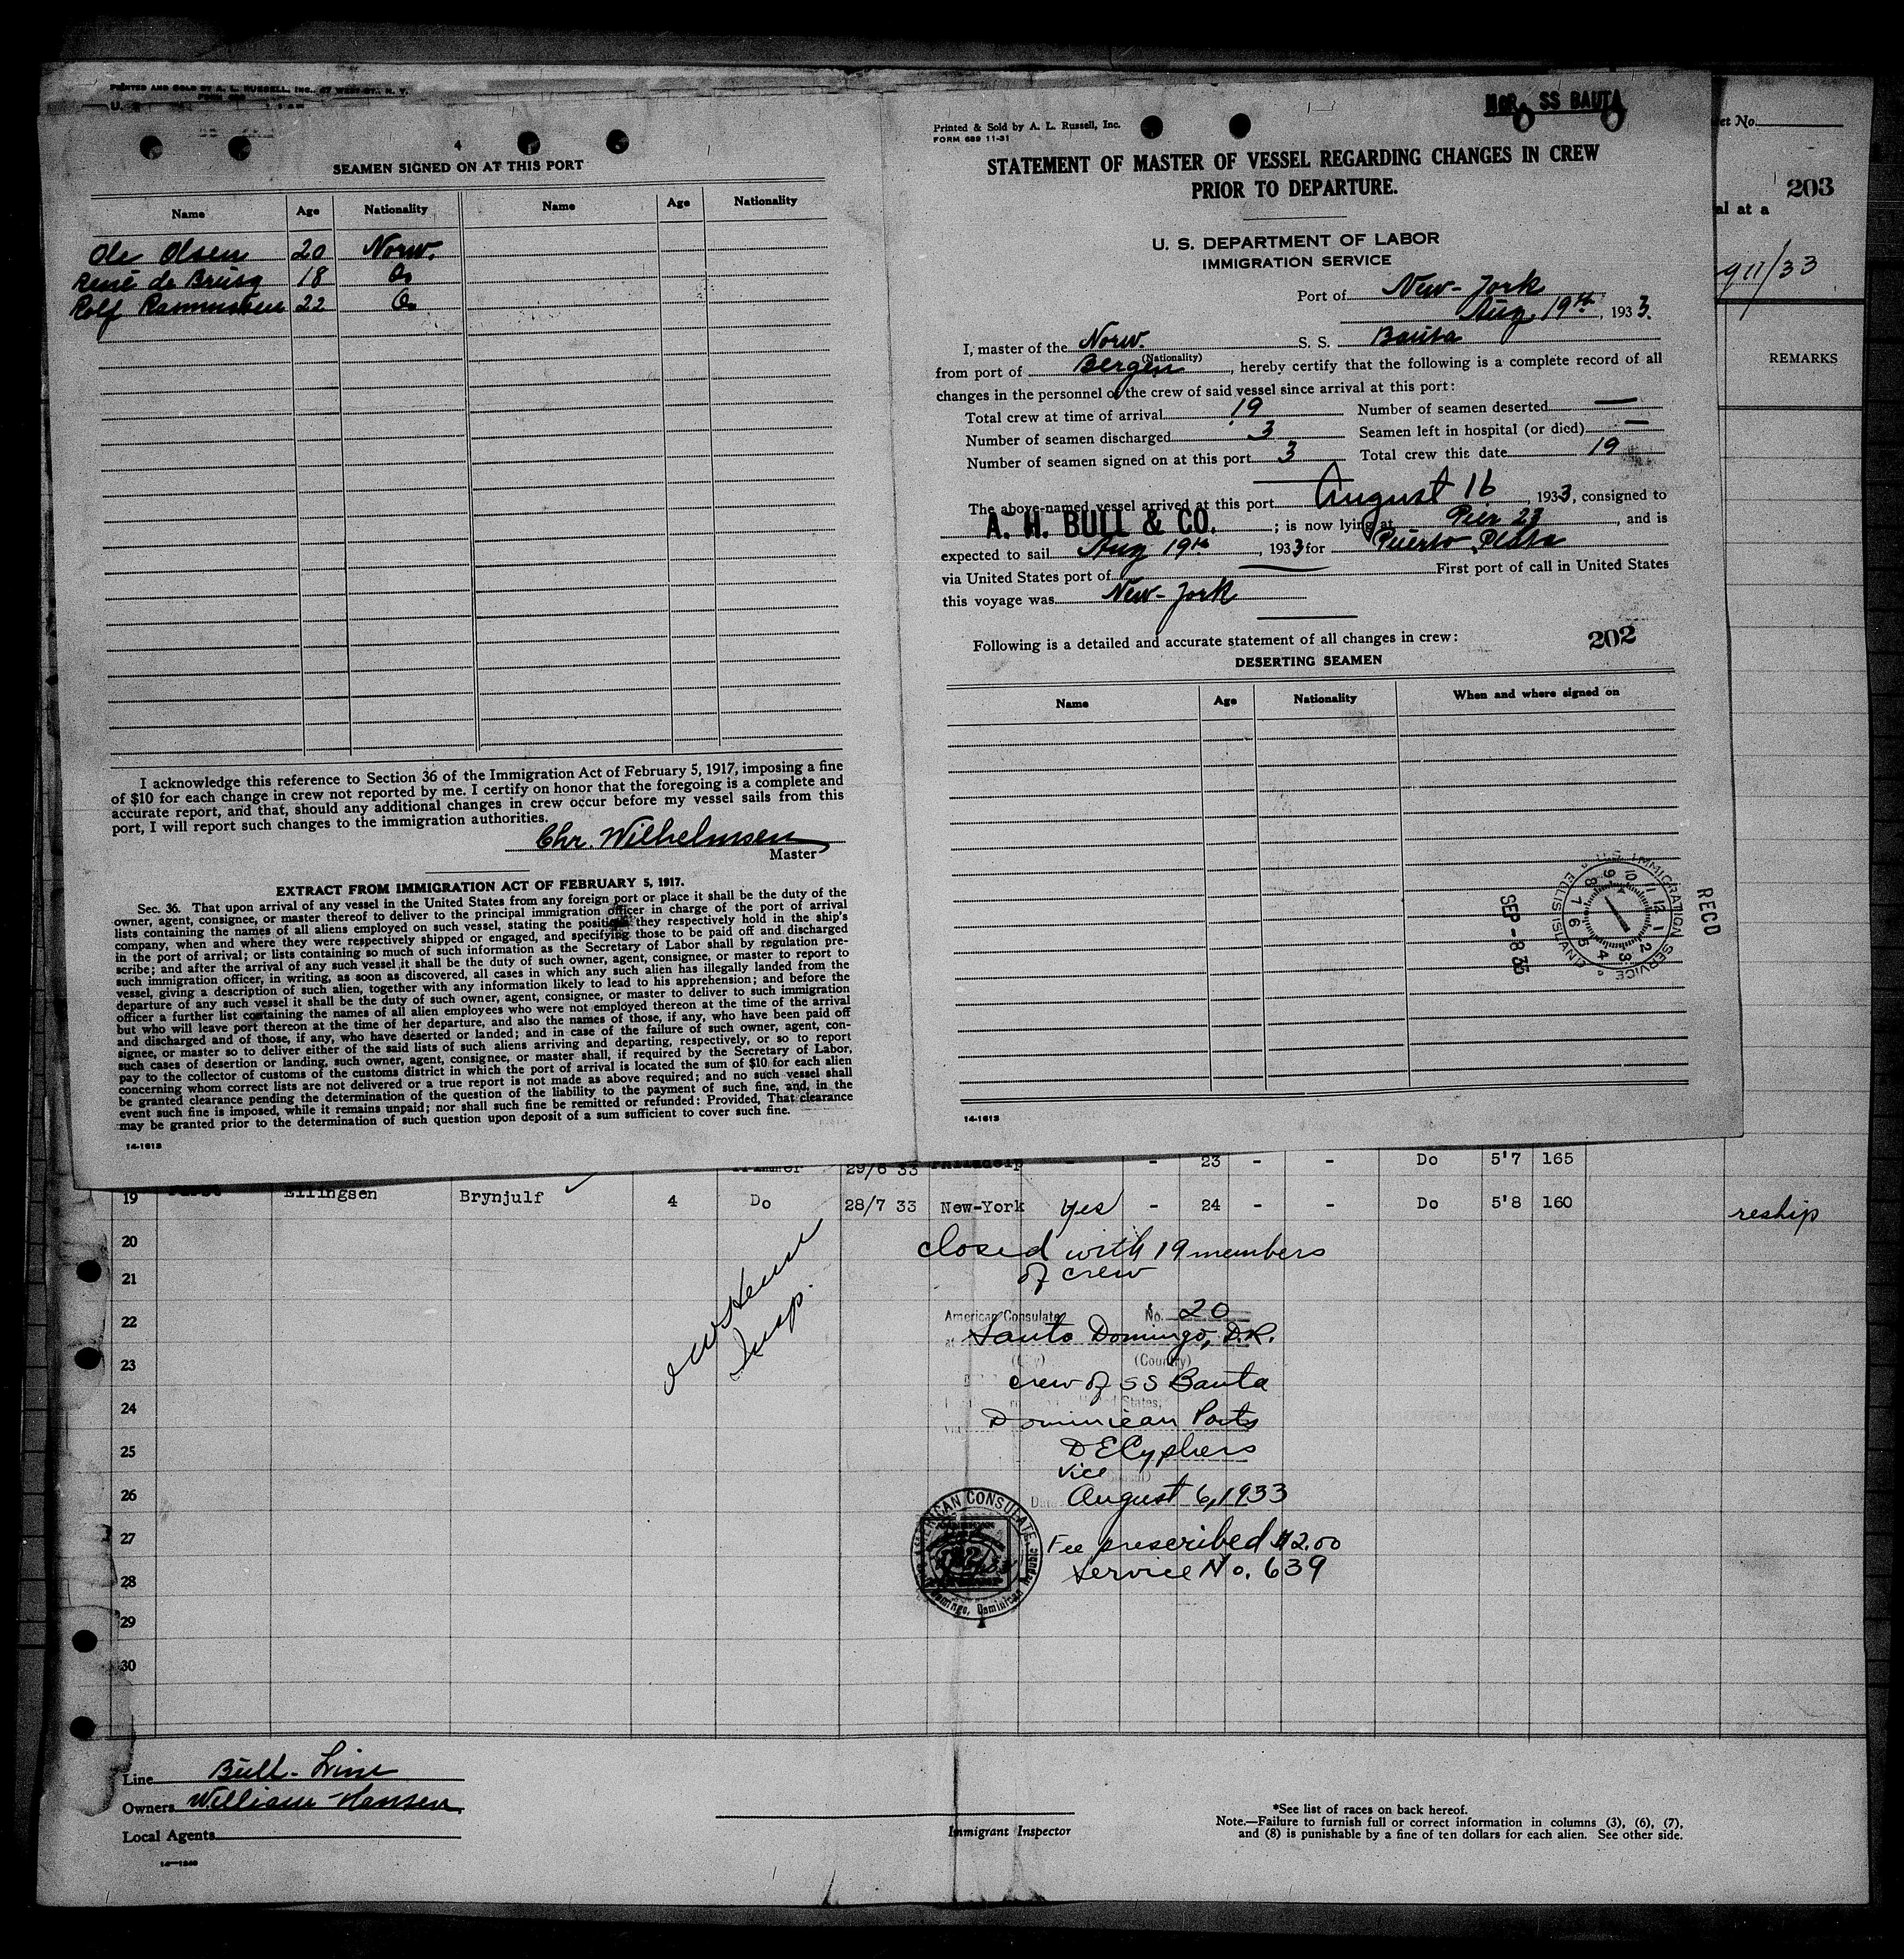 PRINTED AND SOLD BY A. L. RUSSELL, INC., 67 WEST ST., N. Y.
4
SEAMEN SIGNED ON AT THIS PORT
Name Age Nationality Name Age Nationality
Ole Olsen 20 Norw.
René de Brusq 18 Do
Rolf Rasmussen 22 Do
I acknowledge this reference to Section 36 of the Immigration Act of February 5, 1917, imposing a fine
of $10 for each change in crew not reported by me. I certify on honor that the foregoing is a complete and
accurate report, and that, should any additional changes in crew occur before my vessel sails from this
port, I will report such changes to the immigration authorities.
Chr. Wilhelmsen
Master
EXTRACT FROM IMMIGRATION ACT OF FEBRUARY 5, 1917.
Sec. 36. That upon arrival of any vessel in the United States from any foreign port or place it shall be the duty of the
owner, agent, consignee, or master thereof to deliver to the principal immigration officer in charge of the port of arrival
lists containing the names of all aliens employed on such vessel, stating the positions they respectively hold in the ship's
company, when and where they were respectively shipped or engaged, and specifying those to be paid off and discharged
in the port of arrival; or lists containing so much of such information as the Secretary of Labor shall by regulation pre-
scribe; and after the arrival of any such vessel it shall be the duty of such owner, agent, consignee, or master to report to
such immigration officer, in writing, as soon as discovered, all cases in which any such alien has illegally landed from the
vessel, giving a description of such alien, together with any information likely to lead to his apprehension; and before the
departure of any such vessel it shall be the duty of such owner, agent, consignee, or master to deliver to such immigration
officer a further list containing the names of all alien employees who were not employed thereon at the time of the arrival
but who will leave port thereon at the time of her departure, and also the names of those, if any, who have been paid off
and discharged and of those, if any, who have deserted or landed; and in case of the failure of such owner, agent, con-
signee, or master so to deliver either of the said lists of such aliens arriving and departing, respectively, or so to report
such cases of desertion or landing, such owner, agent, consignee, or master shall, if required by the Secretary of Labor,
pay to the collector of customs of the customs district in which the port of arrival is located the sum of $10 for each alien
concerning whom correct lists are not delivered or a true report is not made as above required; and no such vessel shall
be granted clearance pending the determination of the question of the liability to the payment of such fine, and, in the
event such fine is imposed, while it remains unpaid; nor shall such fine be remitted or refunded: Provided, That clearance
may be granted prior to the determination of such question upon deposit of a sum sufficient to cover such fine.
14-1613
NOR. SS BAUTA
Printed & Sold by A. L. Russell, Inc.
FORM 689 11-31
STATEMENT OF MASTER OF VESSEL REGARDING CHANGES IN CREW
PRIOR TO DEPARTURE.
U. S. DEPARTMENT OF LABOR
IMMIGRATION SERVICE
Port of New-York
Aug. 19th, 1933.
I, master of the Norw. S. S. Bauta
(Nationality)
from port of Bergen, hereby certify that the following is a complete record of all
changes in the personnel of the crew of said vessel since arrival at this port:
Total crew at time of arrival 19 Number of seamen deserted —
Number of seamen discharged 3 Seamen left in hospital (or died) —
Number of seamen signed on at this port 3 Total crew this date 19
The above-named vessel arrived at this port August 16, 1933, consigned to
A. H. BULL & CO. ; is now lying at Pier 23, and is
expected to sail Aug 19th, 1933 for Puerto Plata
via United States port of — First port of call in United States
this voyage was New-York
Following is a detailed and accurate statement of all changes in crew: 202
DESERTING SEAMEN
Name Age Nationality When and where signed on
U.S. IMMIGRATION SERVICE
ELLIS ISLAND
8 9 10 11 12 1 2 3 4 5 6 7
RECD
SEP-8 33
14-1613
et No.
203
al at a
REMARKS
29/6 33 Philadelp - - 23 - - Do 5'7 165
19 Ellingsen Brynjulf 4 Do 28/7 33 New-York yes - 24 - - Do 5'8 160 reship
20
21
22
23
24
25
26
27
28
29
30
closed with 19 members
of crew
Insp.
American Consulate No. 20
at Santo Domingo, D.R.
(Country)
crew of SS Bauta
Dominican Ports
D E Cyphers
Vice
August 6, 1933
AMERICAN CONSULATE
Domingo, Dominican Republic
Fee prescribed $2.00
Service No. 639
Line Bull-Line
Owners William Hansen
Local Agents
Immigrant Inspector
*See list of races on back hereof.
Note.—Failure to furnish full or correct information in columns (3), (6), (7),
and (8) is punishable by a fine of ten dollars for each alien. See other side.